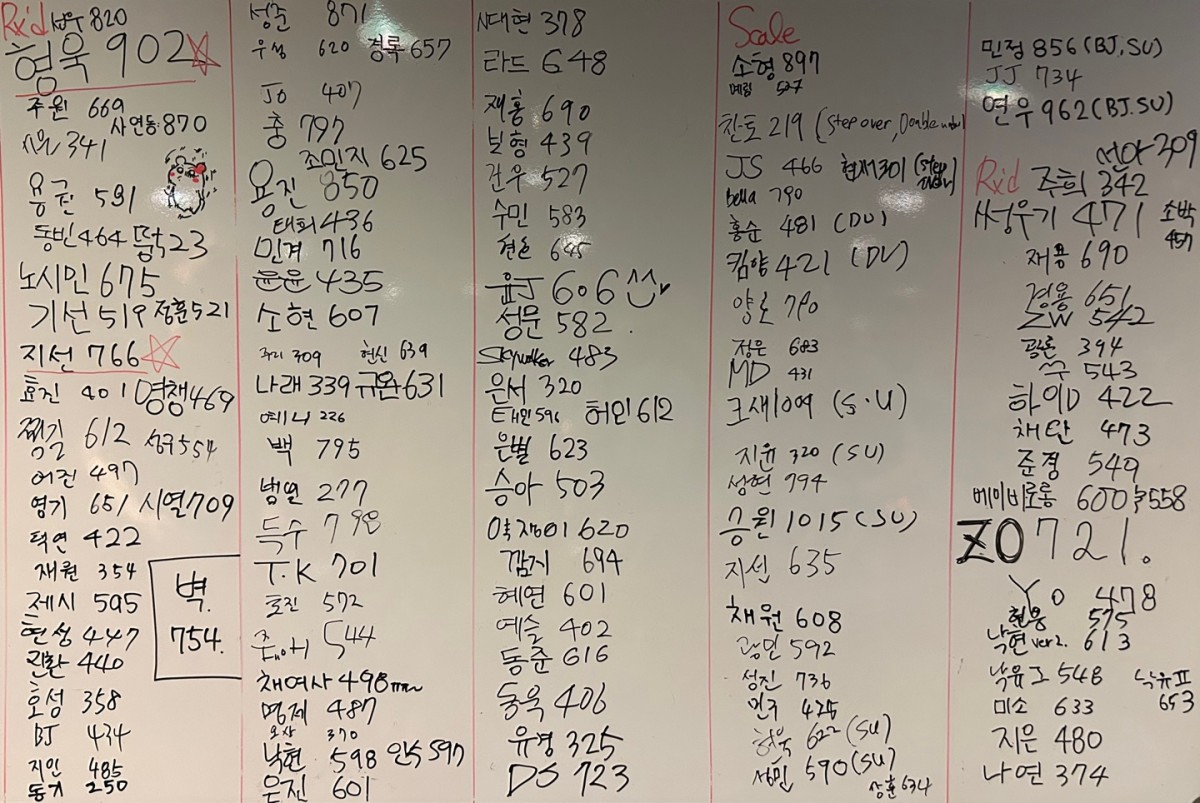 Rx'd 성우 820
형욱 902
주원 669
사연동 870
341
용권 591
동빈 464 떡 23
노시민 675
기선 519 정훈 521
지선 766
효진 401 명챙 469
찍길 612 성규 554
어진 497
영기 651 시연 709
덕연 422
재원 354
제시 505
벽.
754.
현성 447
진환 440
호성 358
BJ 434
지인 485
동기 250
성준 871
우성 620 경록 657
JO 407
충 797
조민지 625
용진 850
태희 436
민계 716
윤윤 435
소현 607
주리 309 현신 639
나래 339 규완 631
예니 226
백 795
범열 277
득수 798
T.K 701
효진 572
544
채여사 498
명제 487
오상 370
낙현 598 인수 597
은진 601
시대현 378
라드 648
재홍 690
보형 439
건우 527
수민 583
645
윤J 606
성문 582
Skywalker 483
은서 320
태민 596 허민 612
은별 623
승아 503
620
감지 694
혜연 601
예슬 402
동준 616
동욱 406
유경 325
DS 723
Scale
소형 897
예림 527
찬토 219 (Step over, Double under)
JS 466 현재 301 (Step
bella 790
홍순 481 (DU)
킴향 421 (DU)
790
정은 683
MD 431
크새 1009 (S.U)
지윤 320 (SU)
성현 794
승원 1015 (SU)
지선 635
채원 608
광민 592
성진 736
민주 425
허욱 622 (SU)
성민 590 (SU)
상훈 634
민정 856 (BJ, SU)
JJ 734
연우 962 (BJ.SU)
선아 309
Rx'd 주희 342
써우기 471 소박 457
재용 690
경용 651
ZW 542
광론 394
543
하이D 422
채단 473
준경 549
베이비로롱 600 558
ZO 721.
Yo 478
현용 575
낙현 ver2. 613
낙유그 548 낙유표 653
미소 633
지은 480
나연 374